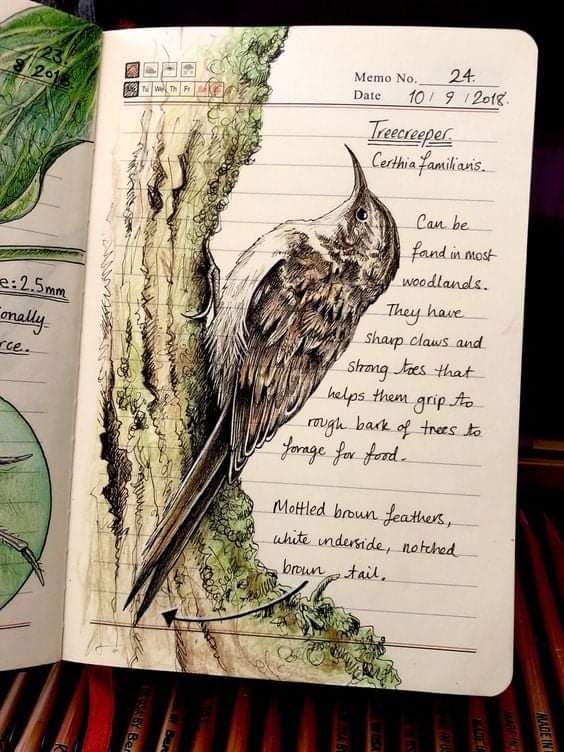 23.
8 2018
e: 2.5mm
onally
rce.
Memo No. 24.
Date 10 / 9 / 2018.
Tu We Th Fr
Treecreeper
Certhia familiaris.
Can be
found in most
woodlands.
They have
sharp claws and
strong toes that
helps them grip to
rough bark of trees to
forage for food.
Mottled brown feathers,
white underside, notched
brown tail.
MADE IN